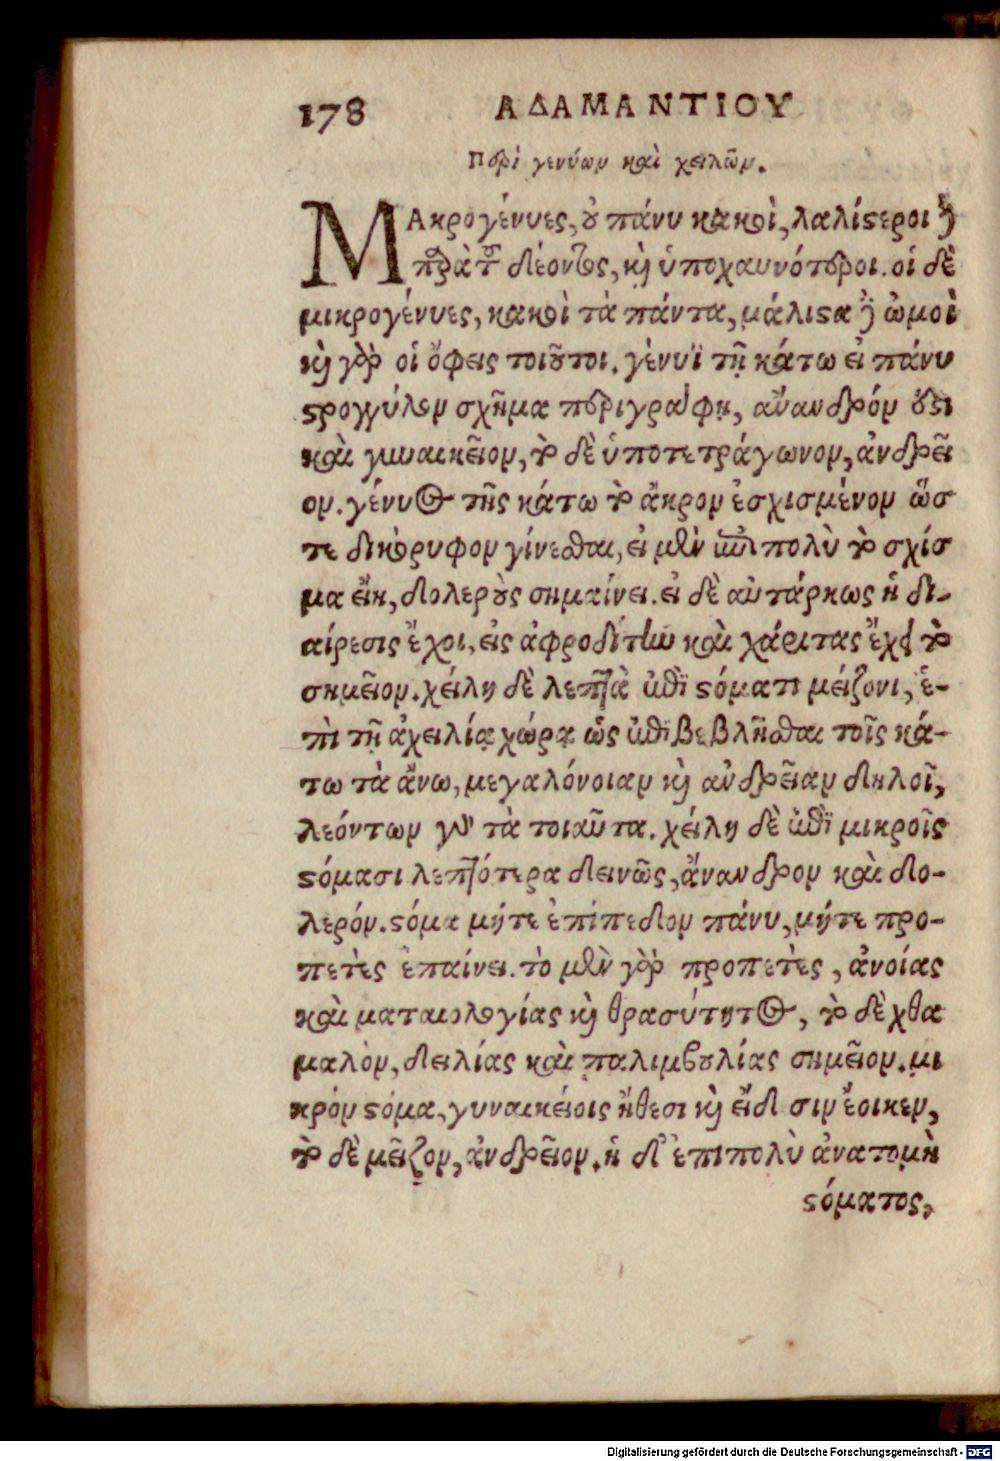 178 ΑΔΑΜΑΝΤΙΟΥ
Περὶ γενύων καὶ χειλῶν.
ΜΑκρογένυες, οὐ πάνυ κακοὶ, λαλίστεροι δὲ
παρὰ τὸ δέοντος, καὶ ὑποχαυνότεροι. οἱ δὲ
μικρογένυες, κακοὶ τὰ πάντα, μάλιστα δὲ ὠμοὶ
καὶ γὰρ οἱ ὄφεις τοιοῦτοι. γένυϊ τῇ κάτω εἰ πάνυ
στρογγύλον σχῆμα περιγραφῃ, ἄνανδρόν ἐστι
καὶ γυναικεῖον, τὸ δὲ ὑποτετράγωνον, ἀνδρεῖ
ον. γένυος τῆς κάτω τὸ ἄκρον ἐσχισμένον ὥσ
τε δικόρυφον γίνεσθαι, εἰ μὲν ἐπιπολὺ τὸ σχίσ
μα εἴη, δολεροὺς σημαίνει. εἰ δὲ αὐτάρκως ἡ δι-
αίρεσις ἔχοι, εἰς ἀφροδίτην καὶ χάριτας ἔχει τὸ
σημεῖον. χείλη δὲ λεπτὰ ἐπὶ στόματι μείζονι, ἐ-
πὶ τῇ ἀχειλίᾳ χώρᾳ ὡς ἐπιβεβλῆσθαι τοῖς κά-
τω τὰ ἄνω, μεγαλόνοιαν καὶ ἀνδρεῖαν δηλοῖ,
λεόντων γὰρ τὰ τοιαῦτα. χείλη δὲ ἐπὶ μικροῖς
στόμασι λεπτότερα δεινῶς, ἄνανδρον καὶ δο-
λερόν. στόμα μήτε ἐπίπεδον πάνυ, μήτε προ-
πετὲς ἐπαίνει. τὸ μὲν γὰρ προπετὲς, ἀνοίας
καὶ ματαιολογίας καὶ θρασύτητος, τὸ δὲ χθα
μαλὸν, δειλίας καὶ παλιμβουλίας σημεῖον. μι
κρὸν στόμα, γυναικείοις ἤθεσι καὶ εἴδεσιν ἔοικεν,
τὸ δὲ μεῖζον, ἀνδρεῖον. ἡ δ' ἐπιπολὺ ἀνατομὴ
στόματος,
Digitalisierung gefördert durch die Deutsche Forschungsgemeinschaft - DFG